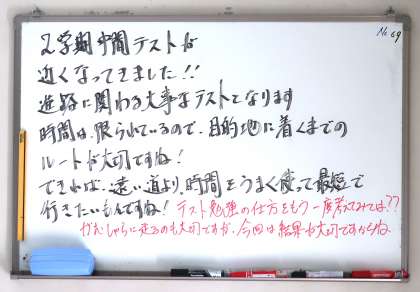 No.69
2学期中間テストが
近くなってきました!!
進路に関わる大事なテストとなります
時間は、限られているので、目的地に着くまでの
ルートが大切ですね!
できれば、遠い道より、時間をうまく使って最短で
行きたいもんですね! テスト勉強の仕方をもう一度考えてみては??
がむしゃらに走るのも大切ですが、今回は結果が大切ですからね。